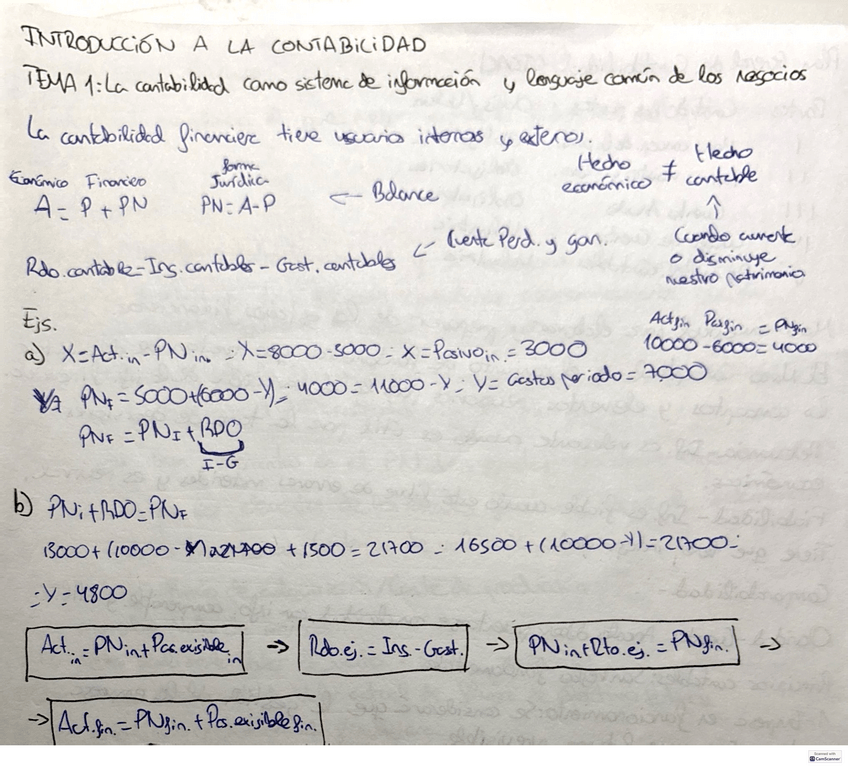 INTRODUCCIÓN A LA CONTABILIDAD
TEMA 1: La contabilidad como sistema de información y lenguaje común de los negocios
La contabilidad financiera tiene usuarios internos y externos.
Económico Financiero forma Jurídica
A = P + PN PN = A - P ← Balance
Hecho económico ≠ Hecho contable
↑
Cuando aumente
o disminuye
nuestro patrimonio
Rdo. contable = Ing. contables - Gast. contables ← Cuenta Perd. y gan.
Ejs.
Act fin Pas fin = PN fin
10000 - 6000 = 4000
a) X = Act. in - PN in. = X = 8000 - 5000 = X = Pasivo in = 3000
PN F = 5000 + (6000 - Y) = 4000 = 11000 - Y = Y = Gastos periodo = 7000
PN F = PN I + RDO
I - G
b) PN i + RDO = PN F
13000 + (10000 - + 1500 = 21700 = 16500 + (10000 - Y) = 21700 =
= Y = 4800
Act. in = PN in + Pas. exisible in → Rdo. ej. = Ing. - Gast. → PN in + Rto. ej. = PN fin. →
→ Act. fin = PN fin. + Pas. exisible fin.
Scanned with
CamScanner